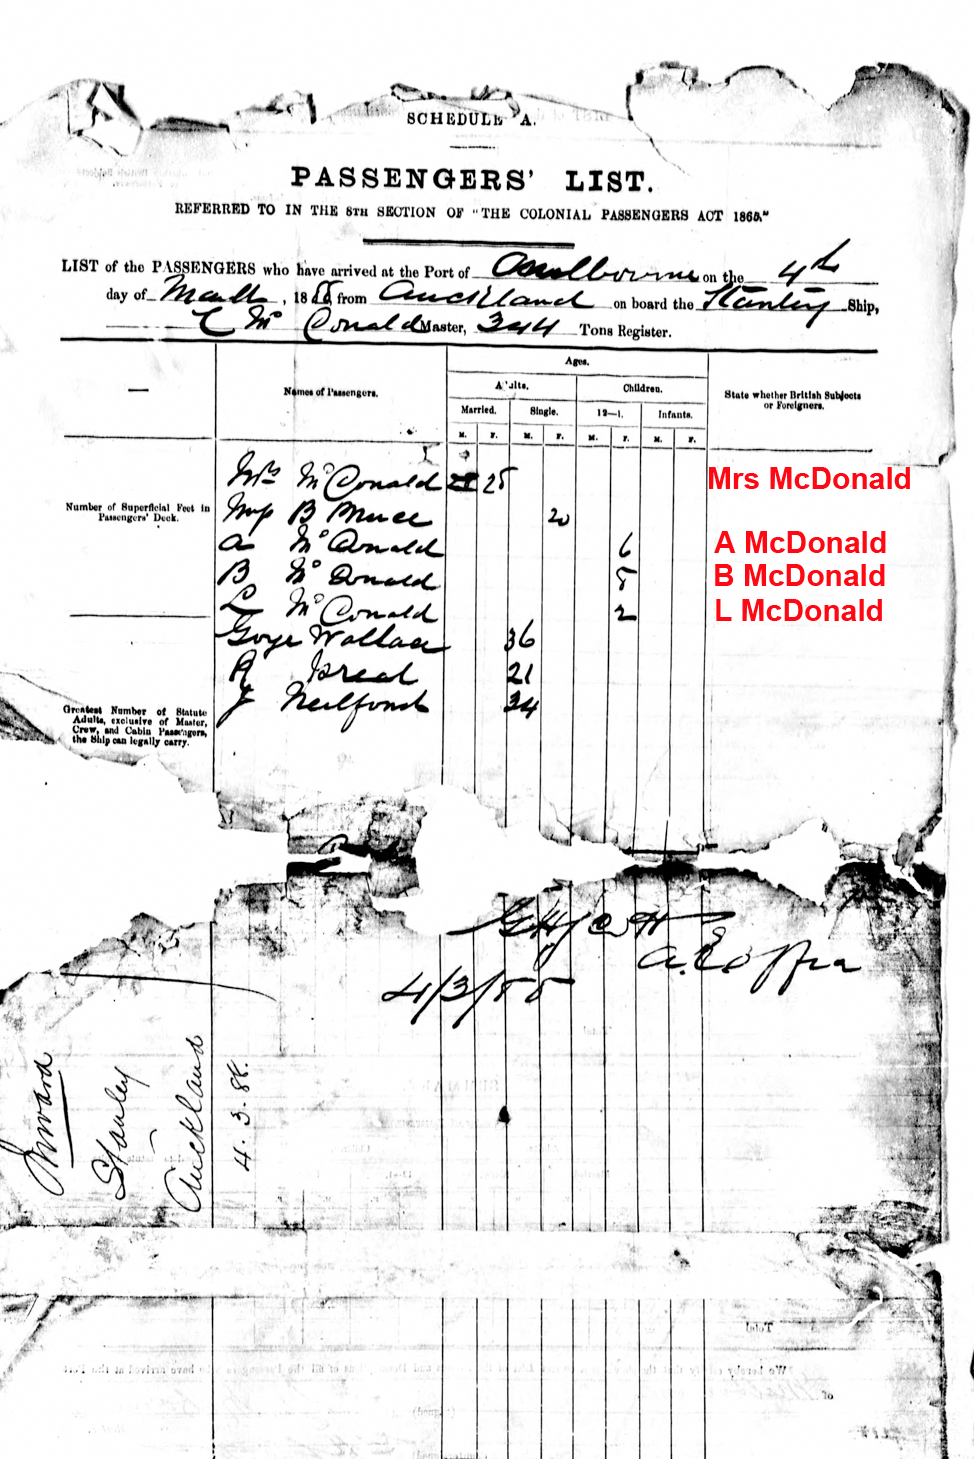 SCHEDULE A.
PASSENGERS' LIST.
REFERRED TO IN THE 8TH SECTION OF "THE COLONIAL PASSENGERS ACT 1865."
LIST of the PASSENGERS who have arrived at the Port of Melbourne on the 4th
day of March, 1888, from Auckland on board the Stanley Ship,
C McDonald Master, 344 Tons Register.
Ages.
Names of Passengers.
Adults.
Children.
State whether British Subjects
or Foreigners.
Married.
Single.
12—1.
Infants.
M. F. M. F. M. F. M. F.
Mrs McDonald 25
Mrs McDonald
Number of Superficial Feet in
Passengers' Deck.
Miss B Bruce 20
A McDonald 6
A McDonald
B McDonald 5
B McDonald
L McDonald 2
L McDonald
Wallace 36
21
J 34
Greatest Number of Statute
Adults, exclusive of Master,
Crew, and Cabin Passengers,
the Ship can legally carry.
4/3/88
Inward
Stanley
Auckland
4.3.88.
Total